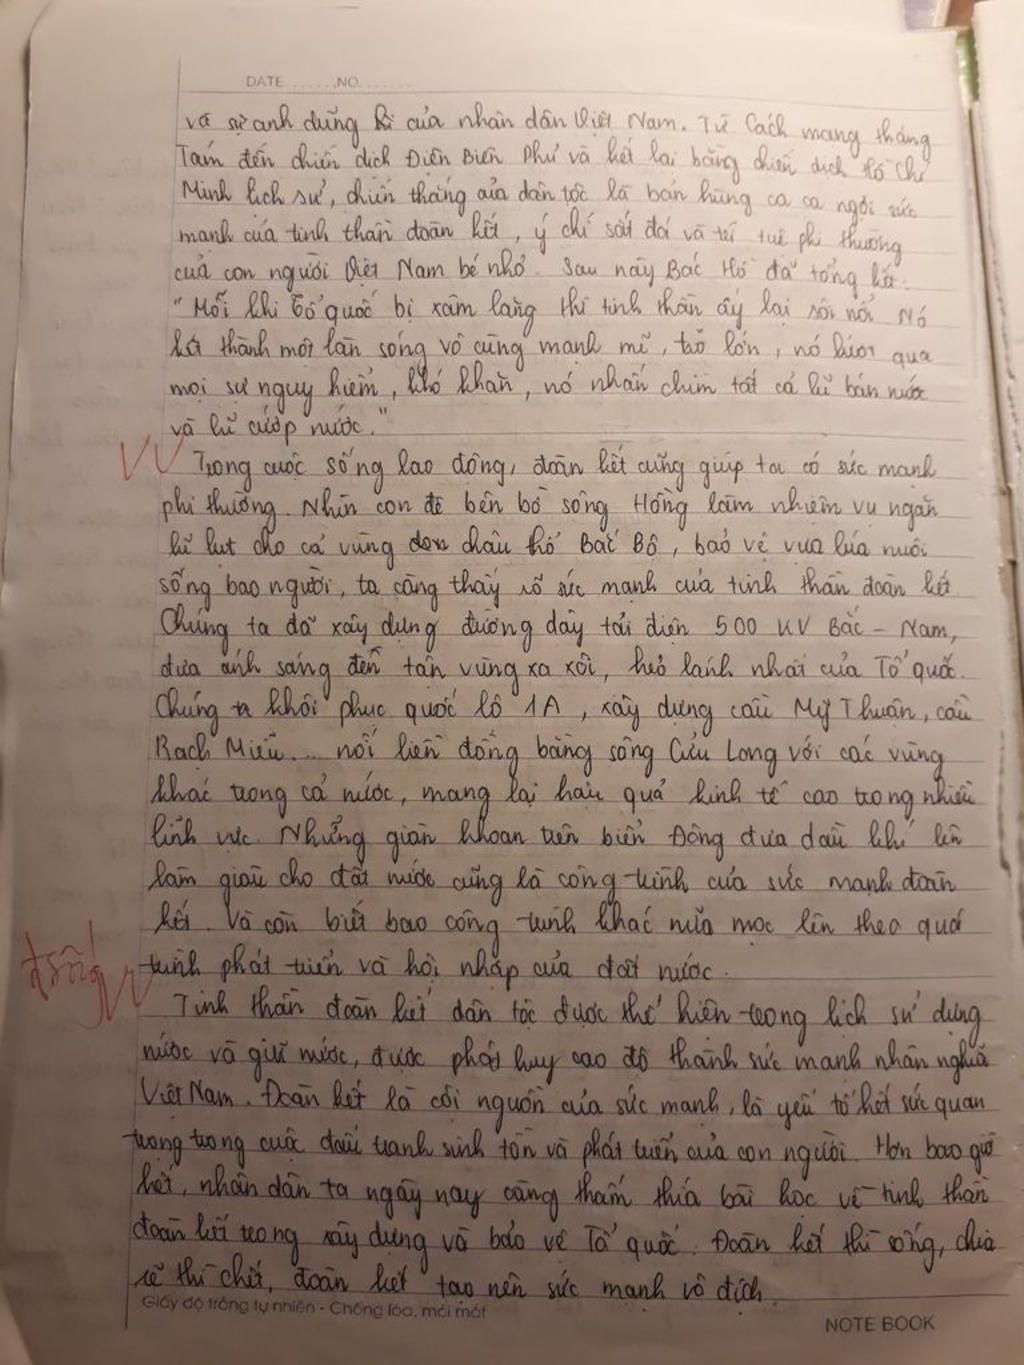 DATE.......NO.......
và sự anh dũng kì của nhân dân Việt Nam. Từ Cách mạng tháng
Tám đến chiến dịch Điện Biên Phủ và kết lại bằng chiến dịch Hồ Chí
Minh lịch sử, chiến thắng của dân tộc là bản hùng ca ca ngợi sức
mạnh của tinh thần đoàn kết, ý chí sắt đá và trí tuệ phi thường
của con người Việt Nam bé nhỏ. Sau này Bác Hồ đã tổng kết.
"Mỗi khi Tổ quốc bị xâm lăng thì tinh thần ấy lại sôi nổi. Nó
kết thành một làn sóng vô cùng mạnh mẽ, to lớn, nó lướt qua
mọi sự nguy hiểm, khó khăn, nó nhấn chìm tất cả lũ bán nước
và lũ cướp nước."
Trong cuộc sống lao động, đoàn kết cũng giúp ta có sức mạnh
phi thường. Nhìn con đê bên bờ sông Hồng làm nhiệm vụ ngăn
lũ lụt cho cả vùng châu thổ Bắc Bộ, bảo vệ vựa lúa nuôi
sống bao người, ta càng thấy rõ sức mạnh của tinh thần đoàn kết.
Chúng ta đã xây dựng đường dây tải điện 500 KV Bắc - Nam,
đưa ánh sáng đến tận vùng xa xôi, hẻo lánh nhất của Tổ quốc.
Chúng ta khôi phục quốc lộ 1A, xây dựng cầu Mỹ Thuận, cầu
Rạch Miễu... nối liền đồng bằng sông Cửu Long với các vùng
khác trong cả nước, mang lại hậu quả kinh tế cao trong nhiều
lĩnh vực. Những giàn khoan trên biển Đông đưa dầu khí lên
làm giàu cho đất nước cũng là công trình của sức mạnh đoàn
kết. Và còn biết bao công trình khác nữa mọc lên theo quá
trình phát triển và hội nhập của đất nước.
Tinh thần đoàn kết dân tộc được thể hiện trong lịch sử dựng
nước và giữ nước, được phát huy cao độ thành sức mạnh nhân nghĩa
Việt Nam. Đoàn kết là cội nguồn của sức mạnh, là yếu tố hết sức quan
trọng trong cuộc đấu tranh sinh tồn và phát triển của con người. Hơn bao giờ
hết, nhân dân ta ngày nay càng thấm thía bài học về tinh thần
đoàn kết trong xây dựng và bảo vệ Tổ quốc. Đoàn kết thì sống, chia
rẽ thì chết, đoàn kết tạo nên sức mạnh vô địch.
Giấy độ trắng tự nhiên - Chống lóa, mỏi mắt
NOTE BOOK